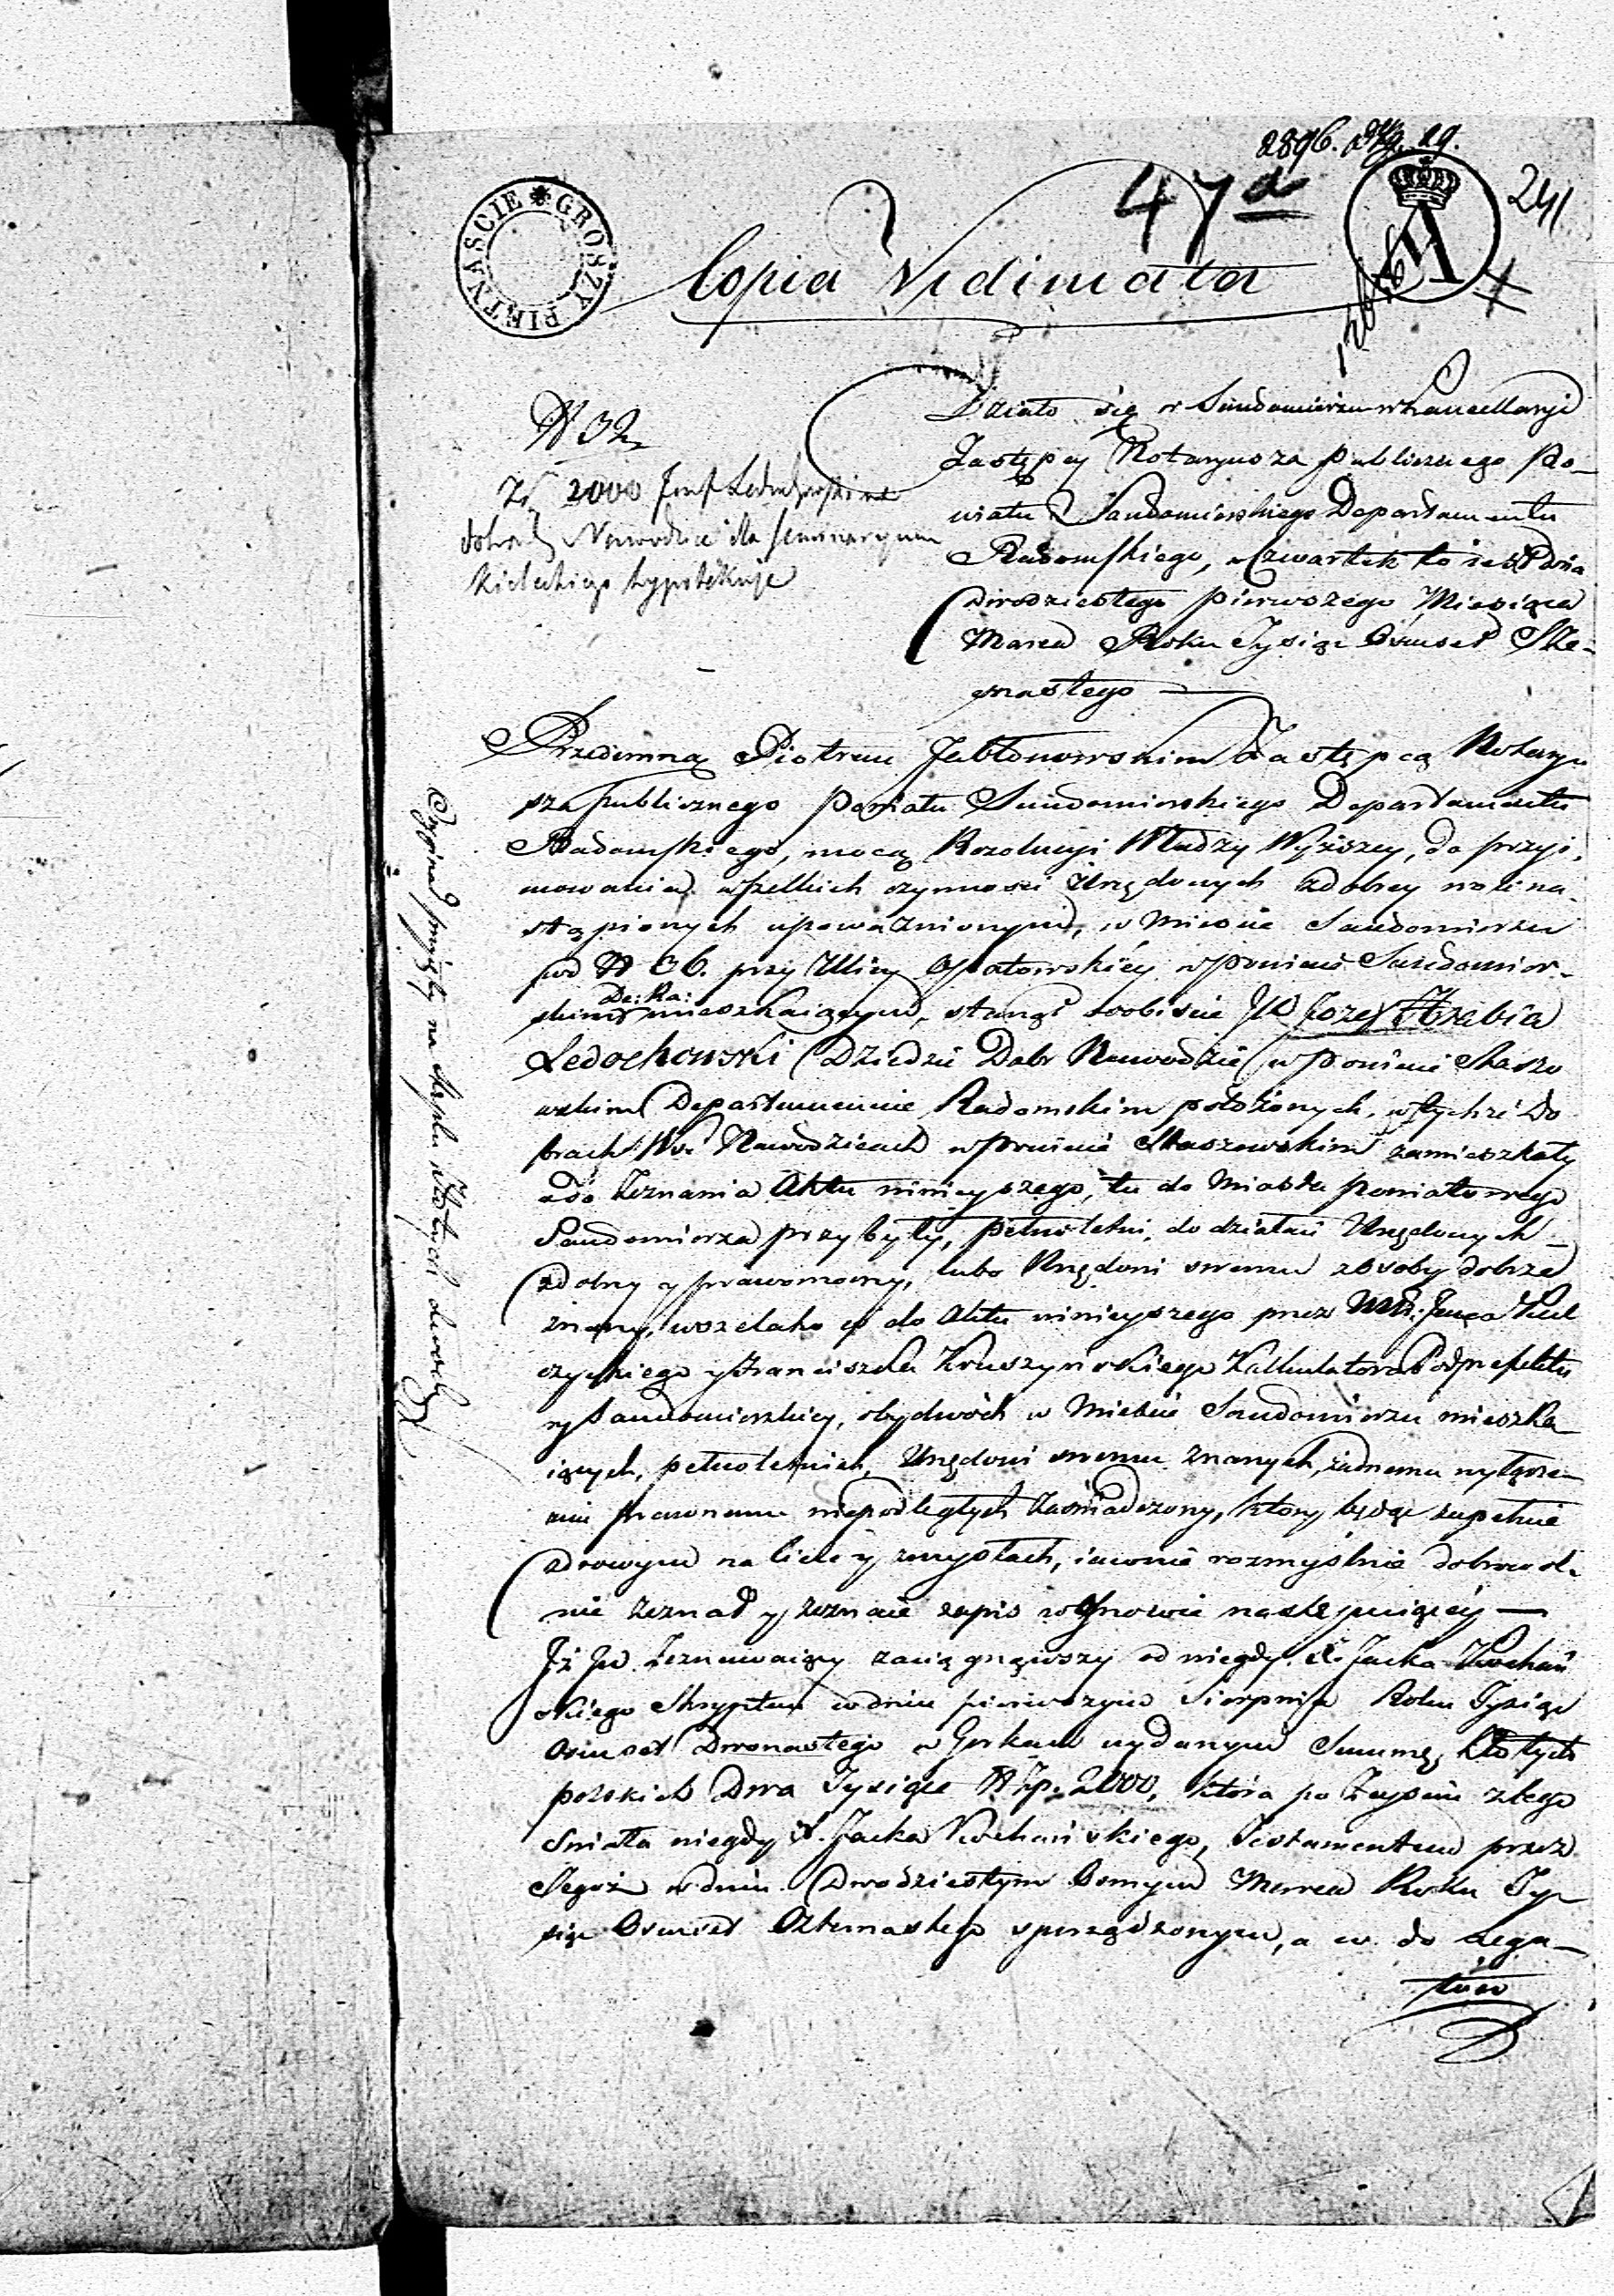 2896.
47a
241
PIETNAŚCIE * GROSZY
A
Copia Vidimata
N 32
Zł 2000 Józef Ledochowski na
dobrach Nawodzice dla Seminaryum
Kieleckiego hypotekuje
Działo się w Sandomierzu w Kancellaryi
Zastępcy Notaryusza publicznego Po-
wiatu Sandomierskiego Departamentu
Radomskiego, w Czwartek to iest dnia
dwodziestego pierwszego Miesiąca
Marca Roku Tysiąc Osmset Sze-
snastego
Przedemną Piotrem Jabłonowskim Zastępcą Notaryu
sza publicznego Powiatu Sandomierskiego Departamentu
Radomskiego, mocą Rezolucyi Władzy Wyższey, do przyi-
mowania wszelkich czynności Urzędowych z dobrey woli na-
stąpionych upoważnionym, w Mieście Sandomierzu
pod N 36. przy Ulicy Opatowskiéy w Powiecie Sandomier-
skim De: Ra: mieszkaiącym, stanął osobiście JW Jozef Hrabia
Ledochowski Dziedzic Dobr Nawodzic w Powiecie Staszo
wskim Departamencie Radomskim położonych, w tychże Do
brach Wsi Nawodzicach w Powiecie Staszowskim zamieszkały
a do Zeznania Aktu ninieyszego, tu do Miasta powiatowego
Sandomierza przybyły, pełnoletni, do działań Urzędowych
zdolny y prawomocny, lubo Urzędowi swemu z osoby dobrze
znany, wszelako y do Aktu ninieyszego przez
czyckiego y Franciszka Kruszyńskiego Kalkulatora Podprefektu
ry Sandomierskiey, obydwóch w Mieście Sandomierzu mieszka-
iących, pełnoletnich, Urzędowi swemu znanych, żadnemu wyłącze-
niu prawnemu niepodległych zaświadczony, który będąc zupełnie
zdrowym na Ciele y zmysłach, iawnie rozmyślnie dobrowol-
nie zeznał y zeznaie zapis w Osnowie następuiącéy
Iż JW. Zeznawaiący zaciągnąwszy od niegdy X. Jacka Kochań
skiego Skryptem w dniu pierwszym Sierpnia Roku Tysiąc
Osmset Dwonastego w Gorkach wydanym Summę Złotych
polskich Dwa Tysiące N Zp. 2000, która po Zeyściu z tego
świata niegdy X. Jacka Kochańskiego, Testamentem przez
Tegoż w dniu Dwodziestym Osmym Marca Roku Ty-
siąc Osmset Czternastego sporządzonym, a w. do Lega-
tów
Oryginał przyięty na Stęplu Złotych dwóch